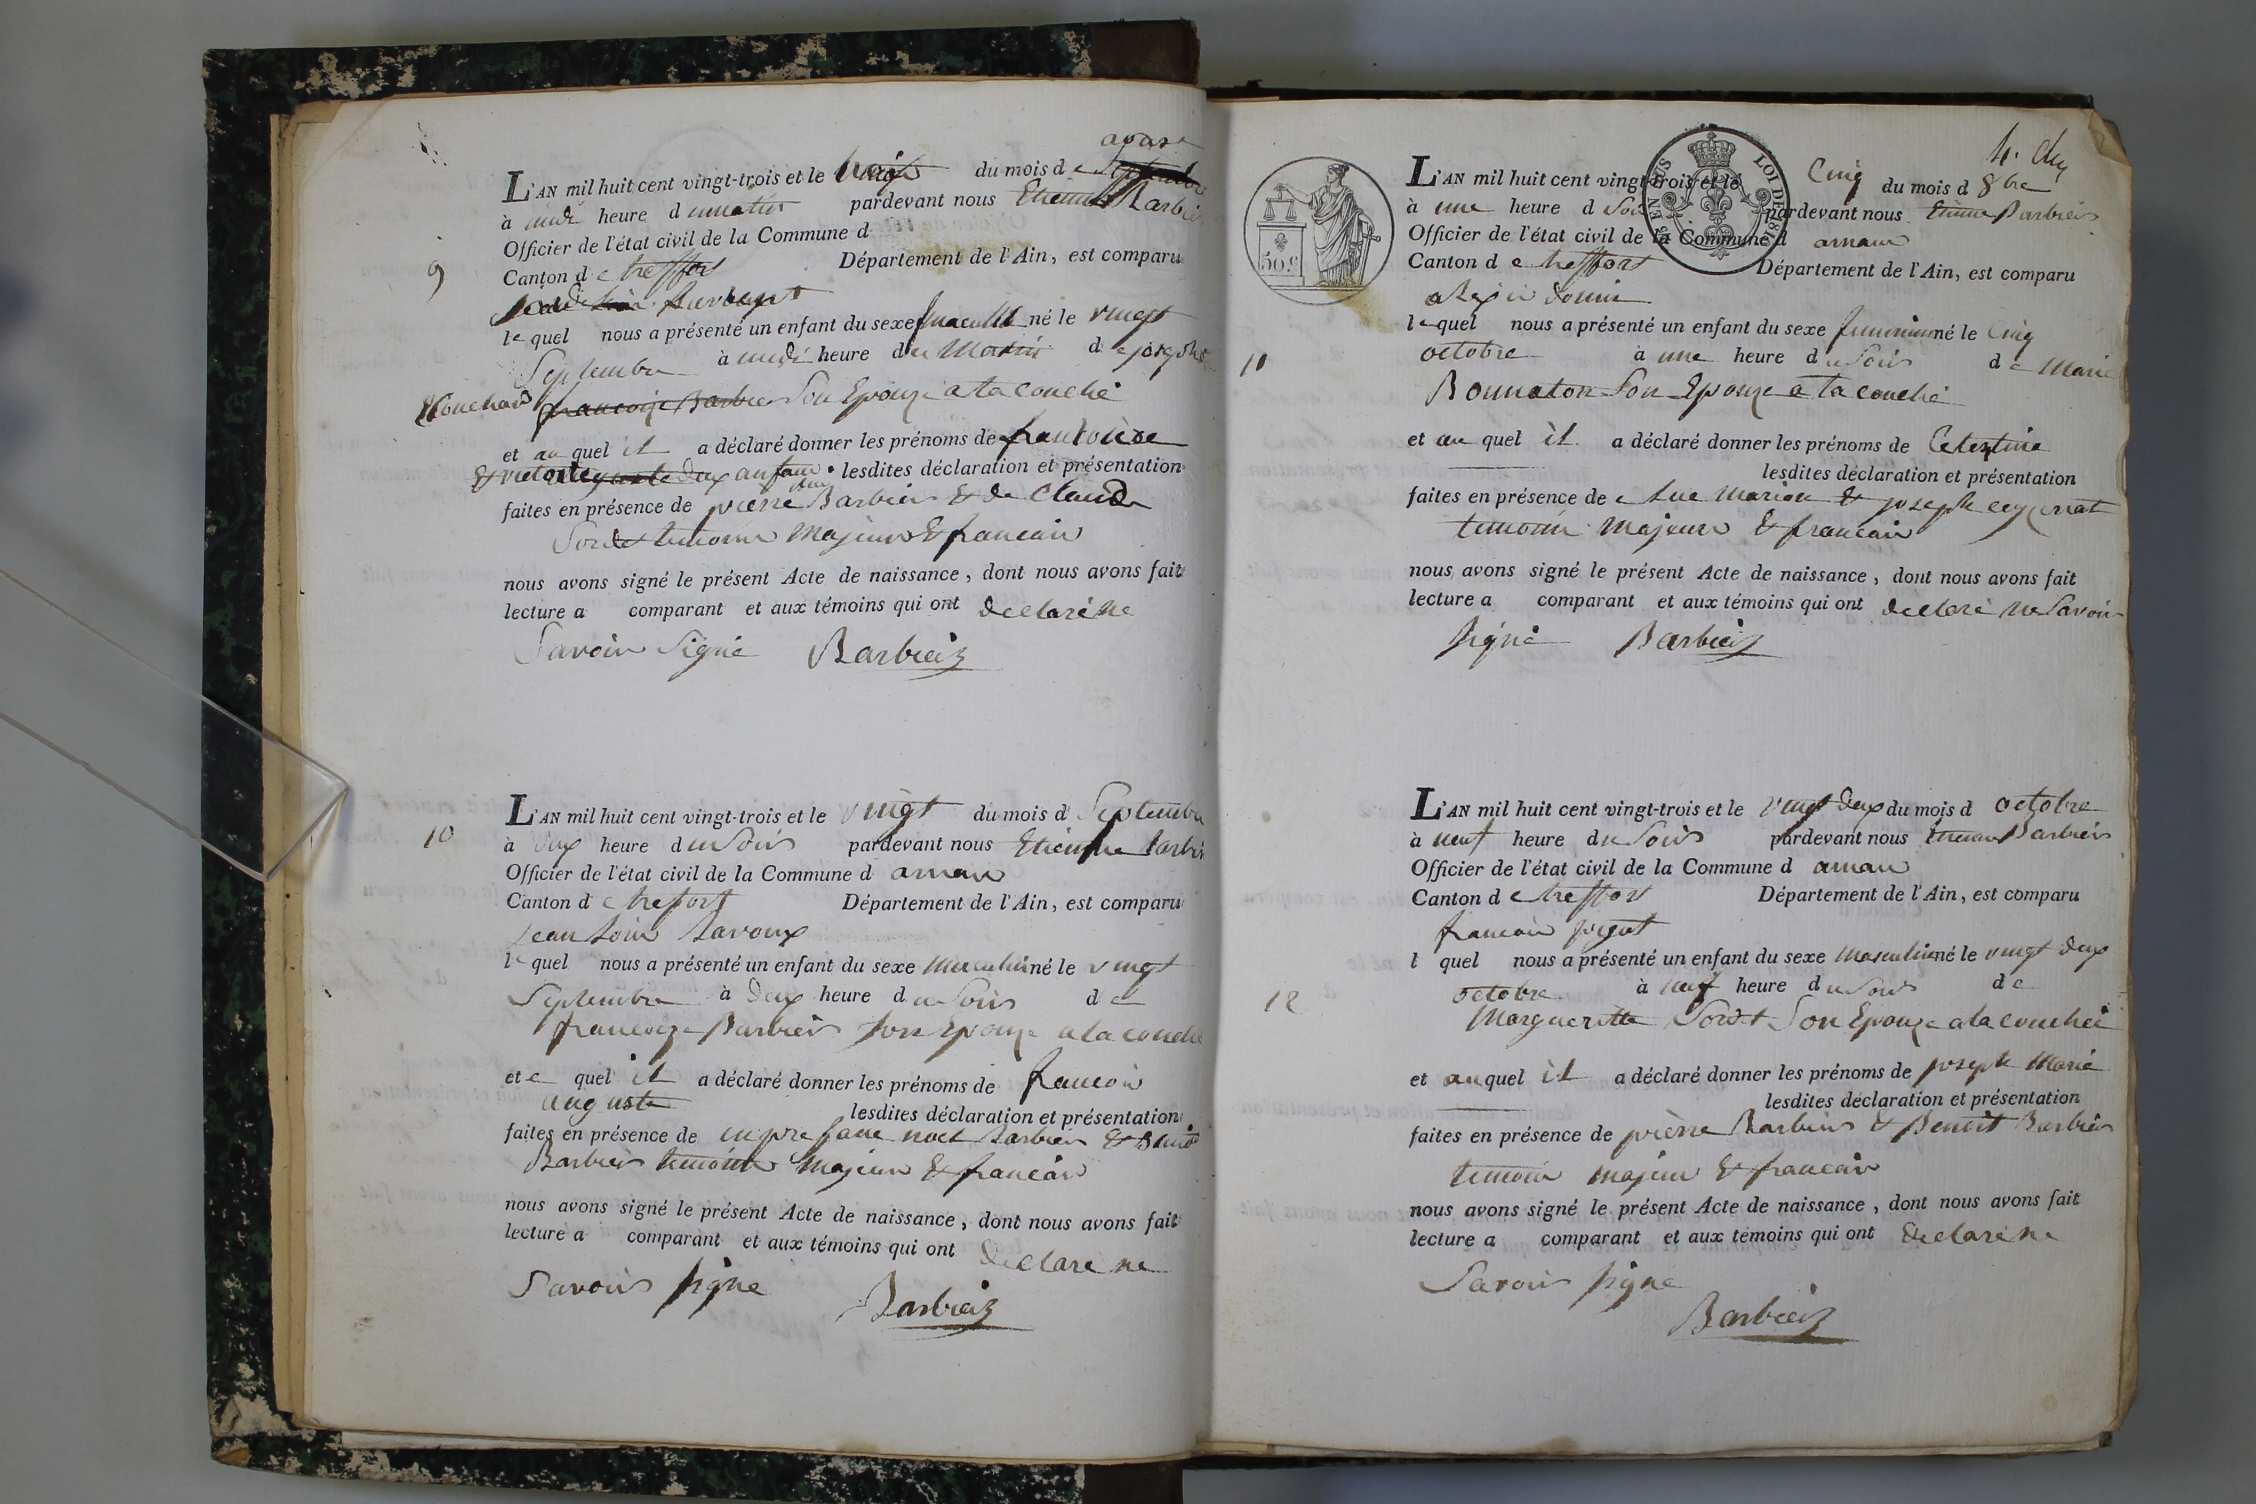 L'AN mil huit cent vingt-trois et le du mois d
à midi heure d pardevant nous Etienne Barbier
Officier de l'état civil de la Commune d
9
Canton d e treffort Département de l'Ain, est comparu
le quel nous a présenté un enfant du sexe né le vingt
Septembre à midi heure d d e josephe
son Epouze a la couché
et au quel il a déclaré donner les prénoms de
lesdites déclaration et présentation
faites en présence de pierre Barbier & de Claude
Sordet temoins Majeurs & francais
nous avons signé le présent Acte de naissance, dont nous avons fait
lecture a comparant et aux témoins qui ont declaré ne
Savoir Signé Barbier
10
L'AN mil huit cent vingt-trois et le vingt du mois d Septembre
à deux heure d u Soir pardevant nous Etienne Barbier
Officier de l'état civil de la Commune d arnan
Canton d e trefort Département de l'Ain, est comparu
jean Loui Lavoux
le quel nous a présenté un enfant du sexe Masculin né le vingt
Septembre à deux heure d u Soir d e
francoize Barbier son Epouze a la couché
et e quel il a déclaré donner les prénoms de francoi
auguste lesdites déclaration et présentation
faites en présence de Barbier & Benoit
Barbier temoin majeur & francais
nous avons signé le présent Acte de naissance, dont nous avons fait
lecture a comparant et aux témoins qui ont declaré ne
Savoir signe
Barbier
50 c.
LOI DE 1816
L'AN mil huit cent vingt-trois et le Cinq du mois d 8bre
à une heure d Soir pardevant nous Etienne Barbier
Officier de l'état civil de la Commune d arnan
Canton d e treffort Département de l'Ain, est comparu
le quel nous a présenté un enfant du sexe feminin né le Cinq
11
octobre à une heure d u Soir d e Marie
Bonnaton Son Epouze a la couché
et au quel il a déclaré donner les prénoms de Celestine
lesdites déclaration et présentation
faites en présence de Luc Marion & joseph
temoin Majeur & francais
nous avons signé le présent Acte de naissance, dont nous avons fait
lecture a comparant et aux témoins qui ont declaré ne Savoir
signé Barbier
L'AN mil huit cent vingt-trois et le vingt deux du mois d octobre
à neuf heure d u Soir pardevant nous Etienne Barbier
Officier de l'état civil de la Commune d arnan
Canton d e treffort Département de l'Ain, est comparu
francois
l quel nous a présenté un enfant du sexe masculin né le vingt deux
octobre à neuf heure d u Soir d e
12
Margueritte Sordet Son Epouze a la couchée
et au quel il a déclaré donner les prénoms de joseph Marie
lesdites déclaration et présentation
faites en présence de pierre Barbier & Benoit Barbier
temoin majeur & francais
nous avons signé le présent Acte de naissance, dont nous avons fait
lecture a comparant et aux témoins qui ont declaré ne
Savoir signe
Barbier